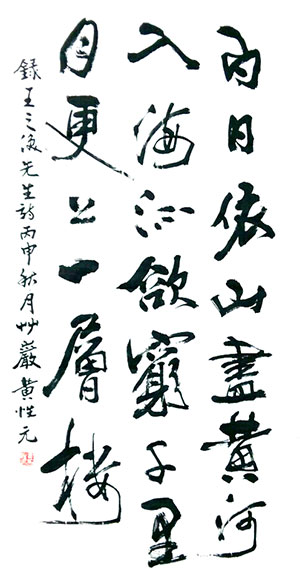 白日依山盡黃河
入海流欲窮千里
目更上一層樓
錄王之渙先生詩丙申秋月艸巖黃性元